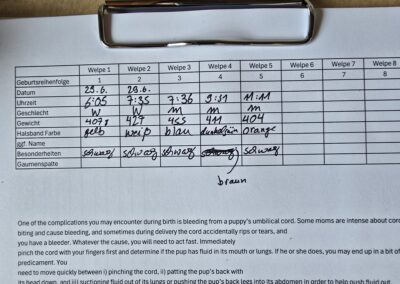 Welpe 1 Welpe 2 Welpe 3 Welpe 4 Welpe 5 Welpe 6 Welpe 7 Welpe 8
Geburtsreihenfolge 1 2 3 4 5 6 7 8
Datum 29.6. 29.6.
Uhrzeit 6:05 7:35 7:36 9:31 11:11
Geschlecht W W m m m
Gewicht 407g 427 455 411 404
Halsband Farbe gelb weiß blau dunkelgrün orange
ggf. Name
Besonderheiten schwarz schwarz schwarz schwarz
Gaumenspalte
braun
One of the complications you may encounter during birth is bleeding from a puppy's umbilical cord. Some moms are intense about cord
biting and cause bleeding, and sometimes during delivery the cord accidentally rips or tears, and
you have a bleeder. Whatever the cause, you will need to act fast. Immediately
pinch the cord with your fingers first and determine if the pup has fluid in its mouth or lungs. If he or she does, you may end up in a bit of
predicament. You
need to move quickly between i) pinching the cord, ii) patting the pup's back with
its head down, and iii) suctioning fluid out of its lungs or pushing the pup's back legs into its abdomen in order to help push fluid out